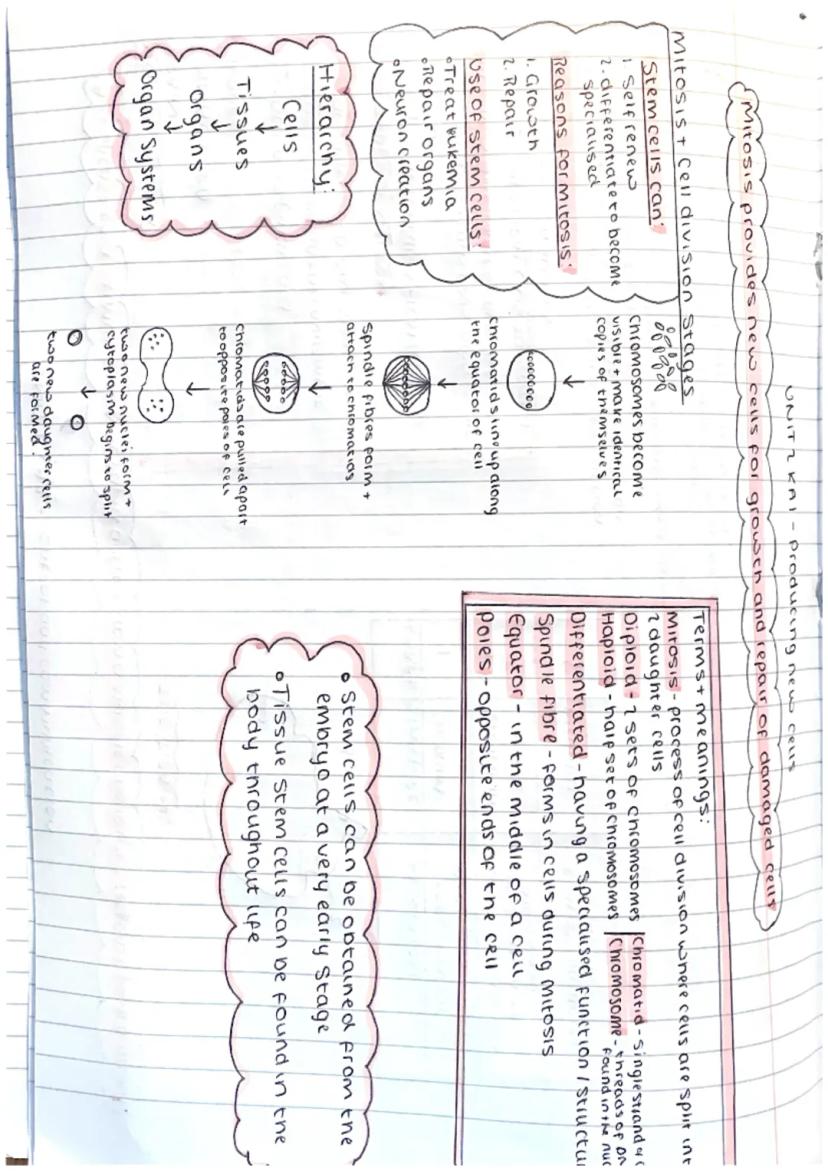 UNIT 2 KA1 - Producing new cells
Mitosis provides new cells for growth and repair of damaged cells
Mitosis + cell division stages
Stem cells can:
1. Self renew
2. differentiate to become
specialised
Reasons for mitosis:
1. Growth
2. Repair
Use of stem cells:
• Treat lukemia
• Repair organs
• Neuron creation
Hierarchy:
Cells
↓
Tissues
↓
Organs
↓
Organ Systems
Chromosomes become
visible + make identical
copies of themselves
↓
chromatids line up along
the equator of cell
↓
Spindle fibres form +
attach to chromatids
↓
chromatids are pulled apart
to opposite poles of cell
↓
two new nuclei form +
cytoplasm begins to split
↓
two new daughter cells
are formed.
Terms + meanings:
Mitosis - process of cell division where cells are split int
2 daughter cells
Diploid - 2 sets of chromosomes
Haploid - half set of chromosomes
Chromatid - single strand of c
Chromosome - threads of DN
found in the nuc
Differentiated - having a specialised function / structu
Spindle fibre - forms in cells during mitosis
Equator - in the middle of a cell
Poles - opposite ends of the cell
• Stem cells can be obtained from the
embryo at a very early stage
• Tissue stem cells can be found in the
body throughout life